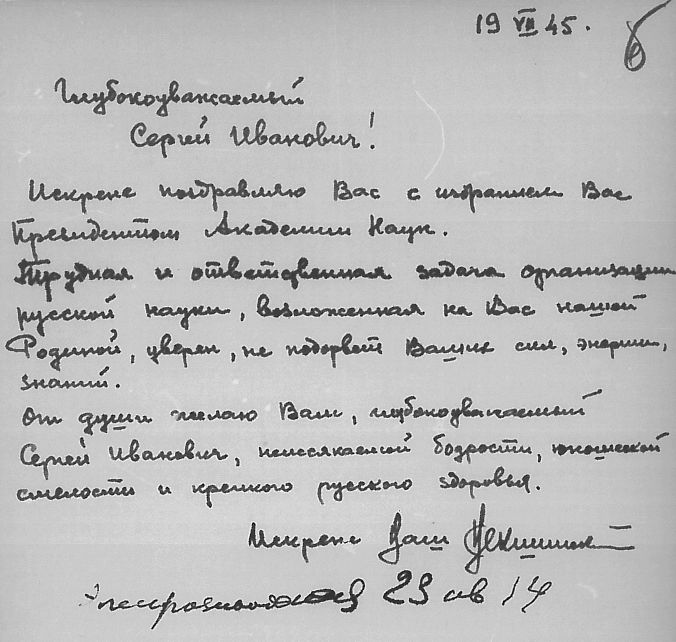 19 VII 45.
6
Глубокоуважаемый
Сергей Иванович!
Искрене поздравляю Вас с избранием Вас
Президентом Академии Наук.
Трудная и ответственная задача организации
русской науки, возложенная на Вас нашей
Родиной, уверен, не подорвет Ваших сил, энергии,
знаний.
От души желаю Вам, глубокоуважаемый
Сергей Иванович, неиссякаемой бодрости, юношеской
смелости и крепкого русского здоровья.
Искрене Ваш
23 кв 14